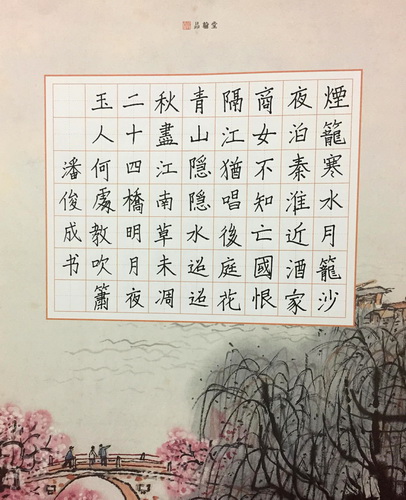 品翰堂
煙籠寒水月籠沙
夜泊秦淮近酒家
商女不知亡國恨
隔江猶唱後庭花
青山隱隱水迢迢
秋盡江南草未凋
二十四橋明月夜
玉人何處教吹簫
潘俊成书